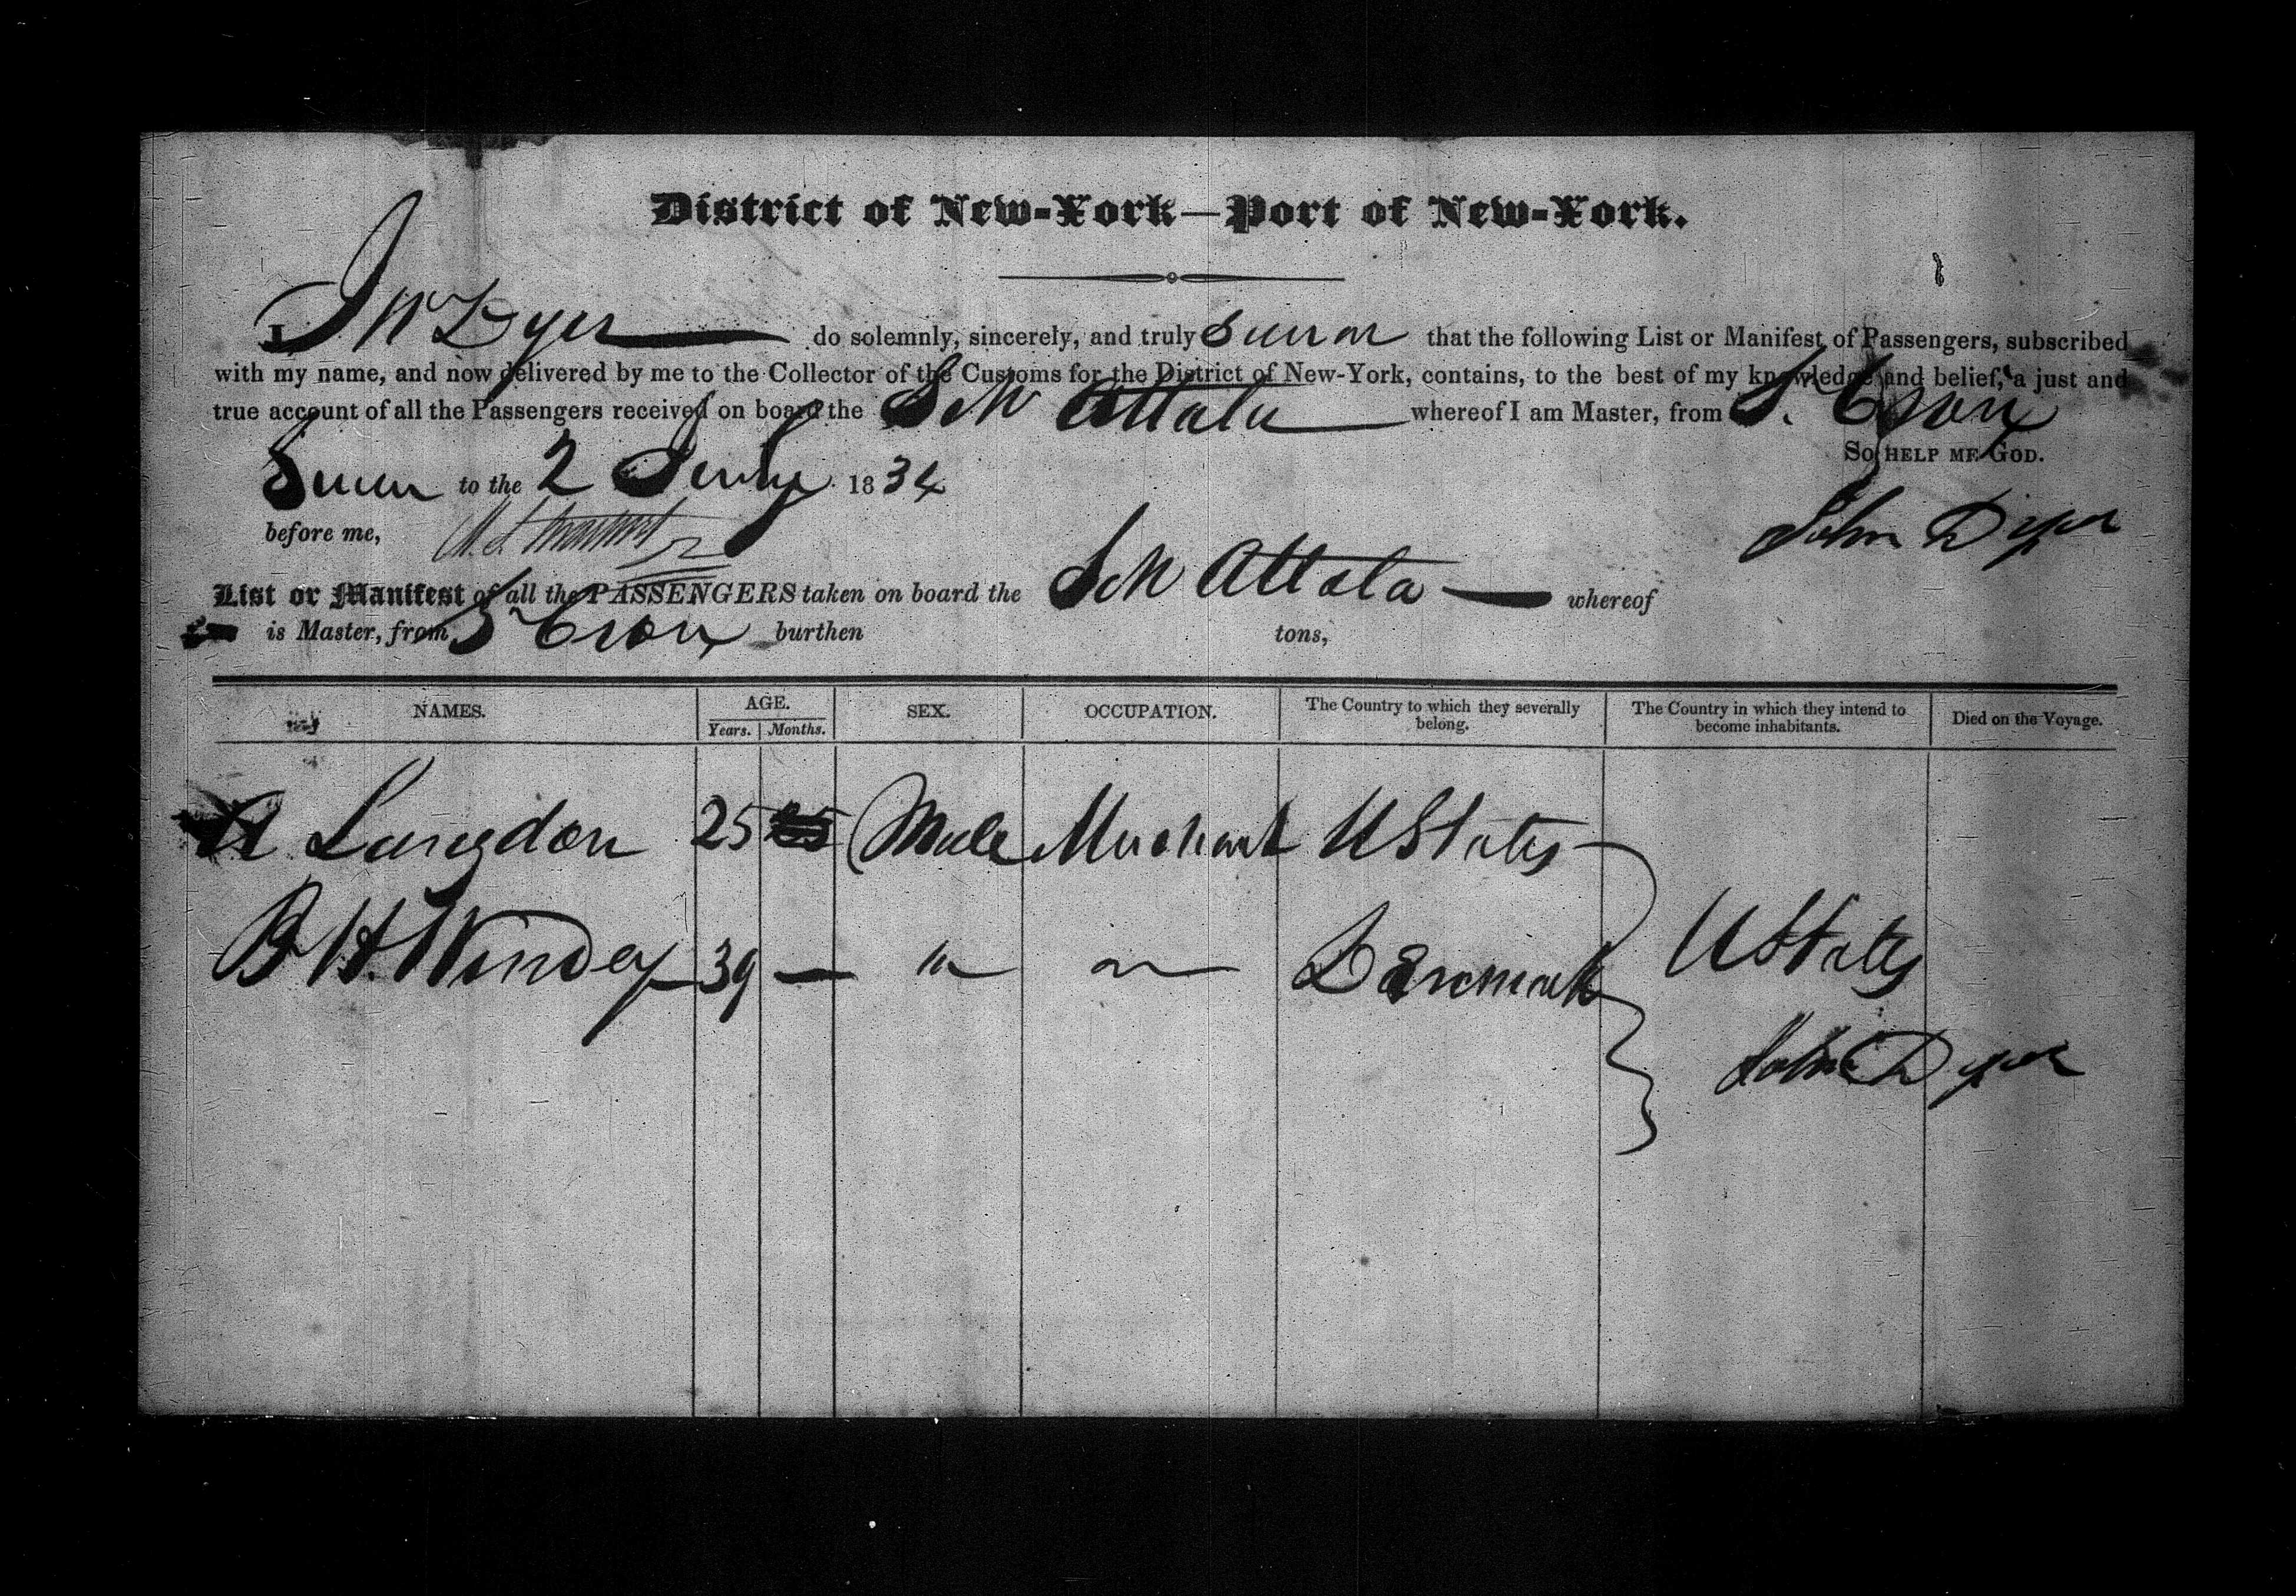 District of New-York—Port of New-York.
I, J W Dyer do solemnly, sincerely, and truly swear that the following List or Manifest of Passengers, subscribed
with my name, and now delivered by me to the Collector of the Customs for the District of New-York, contains, to the best of my knowledge and belief, a just and
true account of all the Passengers received on board the Sch Attala whereof I am Master, from St. Croix
So HELP ME GOD.
Sworn to the 2 July 1834
before me,
John Dyer
List or Manifest of all the PASSENGERS taken on board the Sch Attala whereof
is Master, from St Croix burthen tons,
NAMES. AGE. SEX. OCCUPATION. The Country to which they severally belong. The Country in which they intend to become inhabitants. Died on the Voyage.
Years. Months.
A Langdon 25 Male Merchant U States
B H. 39 — " Denmark U States
John Dyer